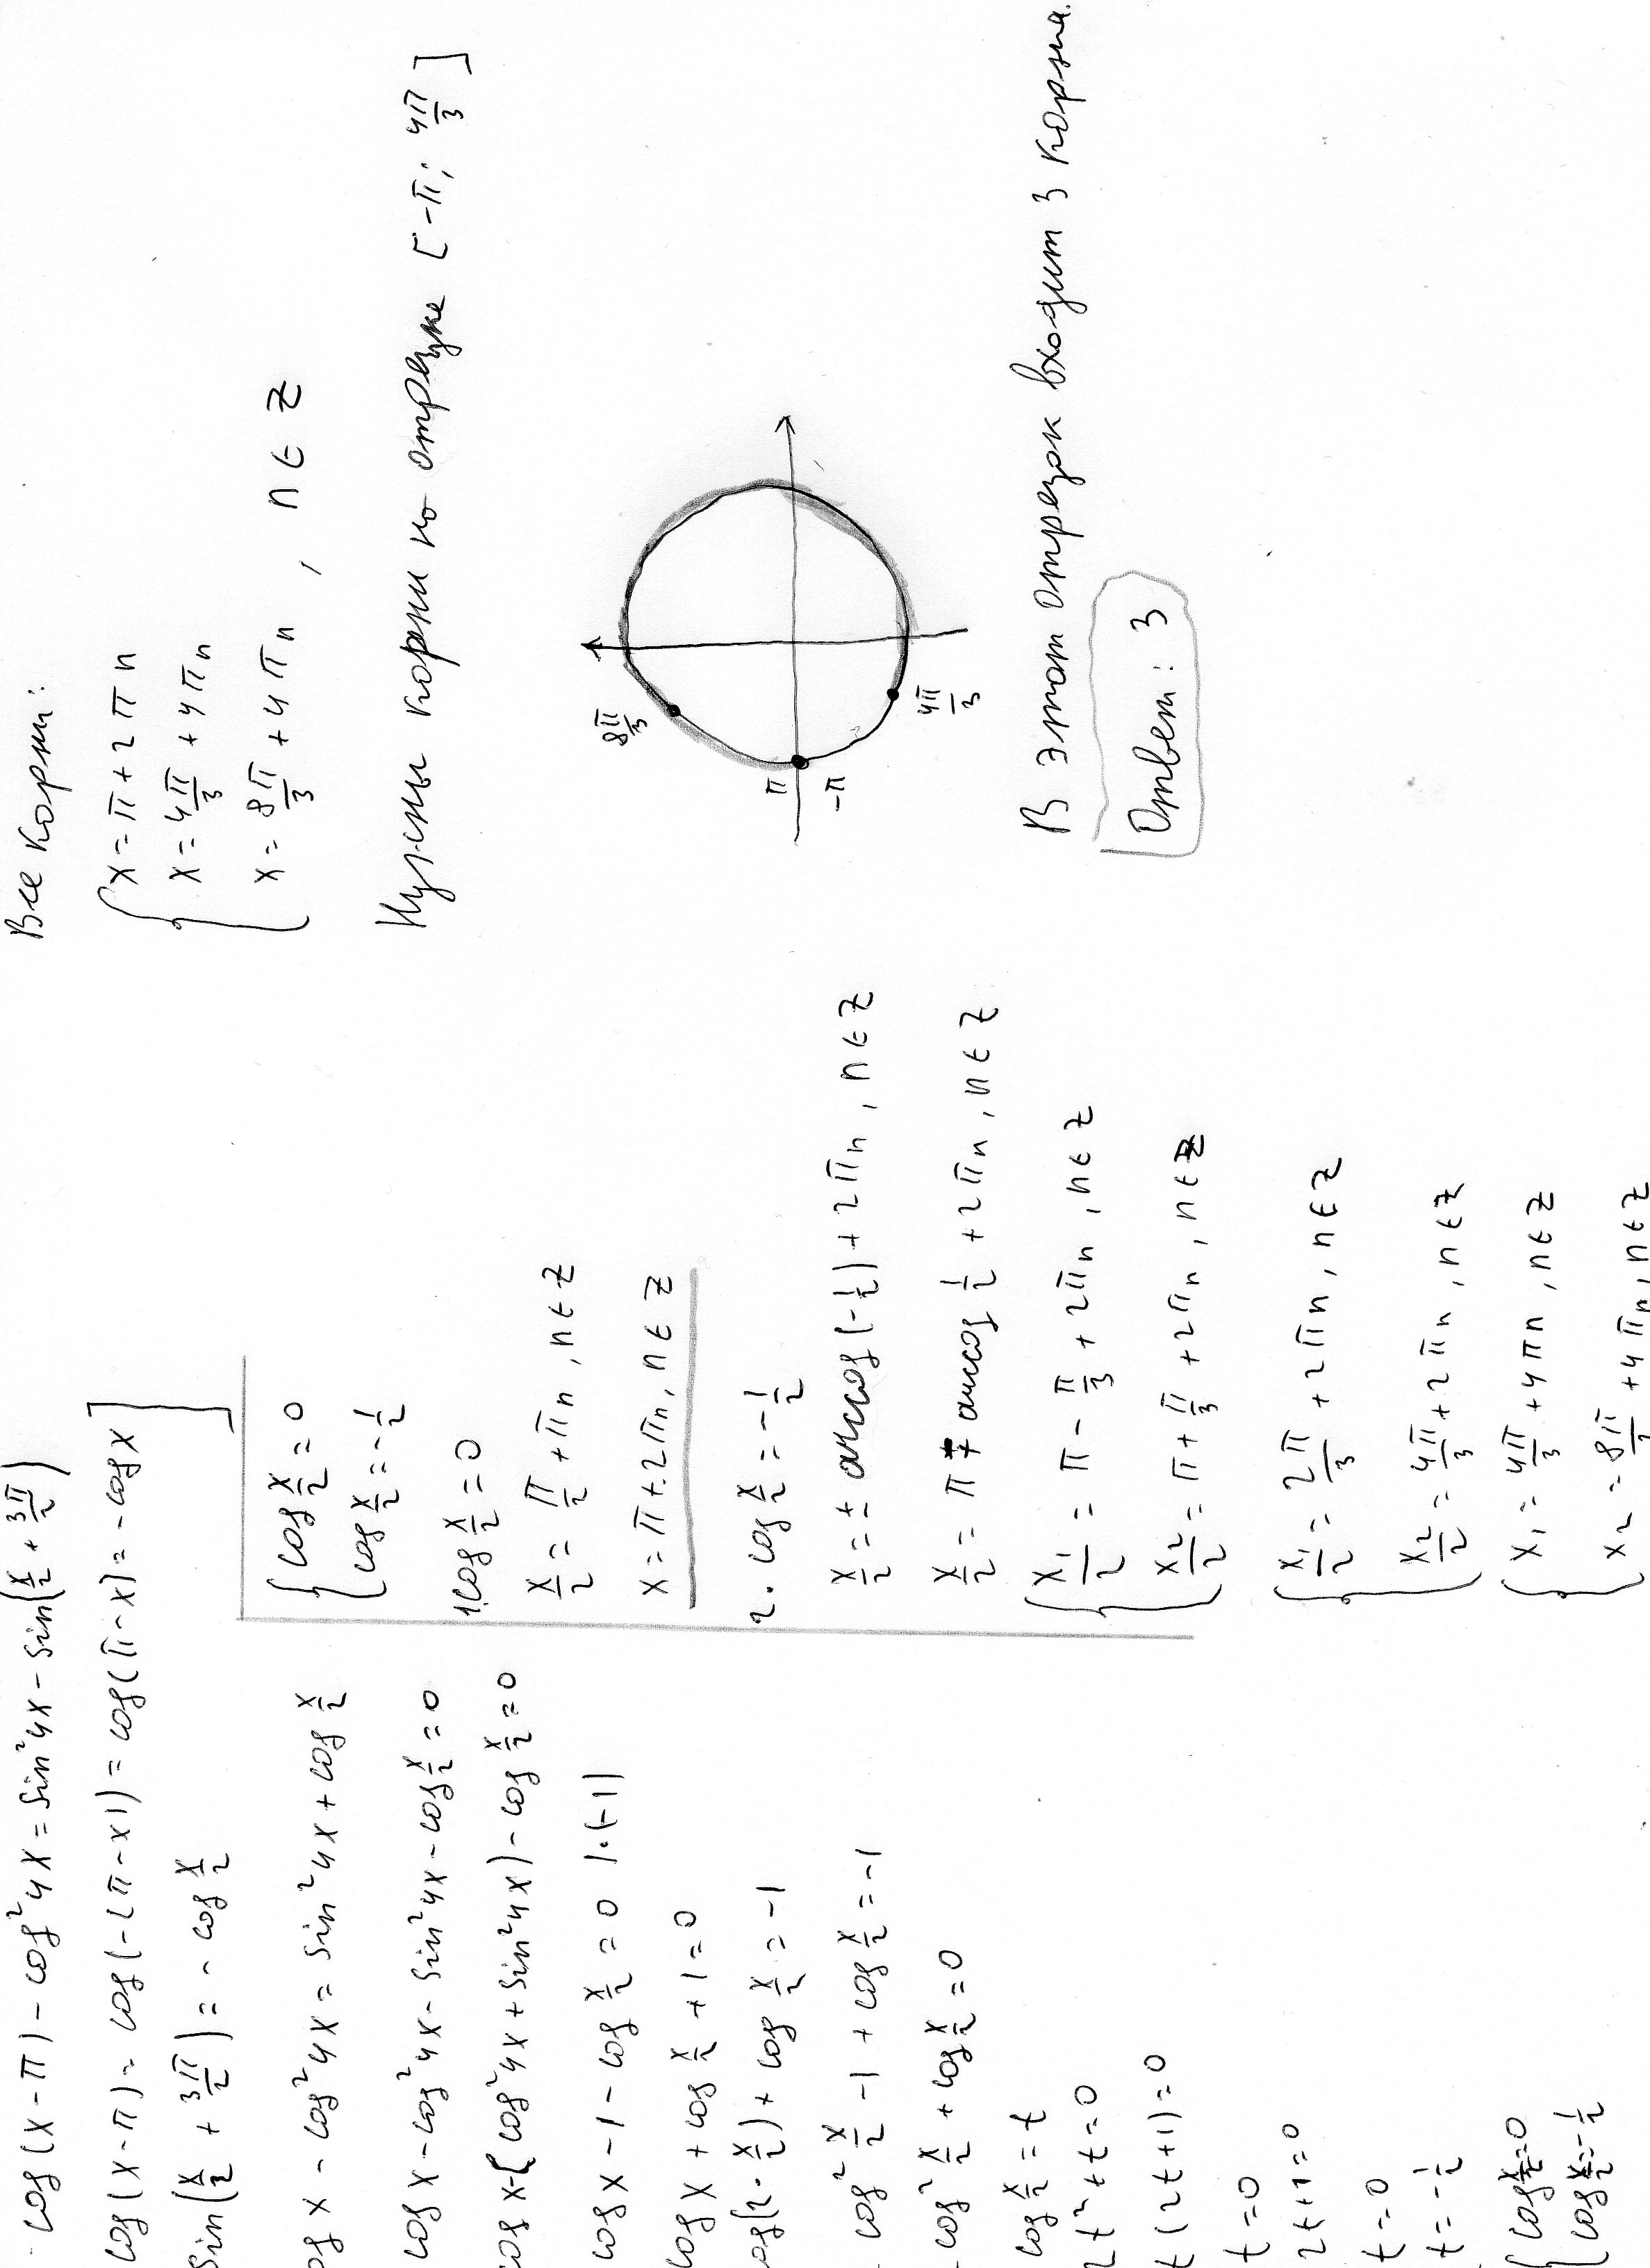 cos(x-π) - cos²4x = sin²4x - sin(x/2 + 3π/2)
cos(x-π) = cos(-(π-x)) = cos(π-x) = -cos x ]
sin(x/2 + 3π/2) = -cos x/2
os x - cos²4x = sin²4x + cos x/2
cos x - cos²4x - sin²4x - cos x/2 = 0
cos x - (cos²4x + sin²4x) - cos x/2 = 0
cos x - 1 - cos x/2 = 0 |·(-1)
cos x + cos x/2 + 1 = 0
cos(2· x/2) + cos x/2 = -1
cos² x/2 - 1 + cos x/2 = -1
cos² x/2 + cos x/2 = 0
cos x/2 = t
2t² + t = 0
t(2t+1) = 0
t = 0
2t+1 = 0
t = 0
t = -1/2
{ cos x/2 = 0
cos x/2 = -1/2
{ cos x/2 = 0
cos x/2 = -1/2
1. cos x/2 = 0
x/2 = π/2 + πn, n ∈ Z
x = π + 2πn, n ∈ Z
2. cos x/2 = -1/2
x/2 = ± arccos(-1/2) + 2πn, n ∈ Z
x/2 = π ∓ arccos 1/2 + 2πn, n ∈ Z
{ x₁/2 = π - π/3 + 2πn, n ∈ Z
x₂/2 = π + π/3 + 2πn, n ∈ Z
{ x₁/2 = 2π/3 + 2πn, n ∈ Z
x₂/2 = 4π/3 + 2πn, n ∈ Z
{ x₁ = 4π/3 + 4πn, n ∈ Z
x₂ = 8π/3 + 4πn, n ∈ Z
Все корни:
{ x = π + 2πn
x = 4π/3 + 4πn
x = 8π/3 + 4πn, n ∈ Z
Нужны корни на отрезке [-π; 4π/3]
8π/3
π
-π
4π/3
В этот отрезок входит 3 корня.
Ответ: 3